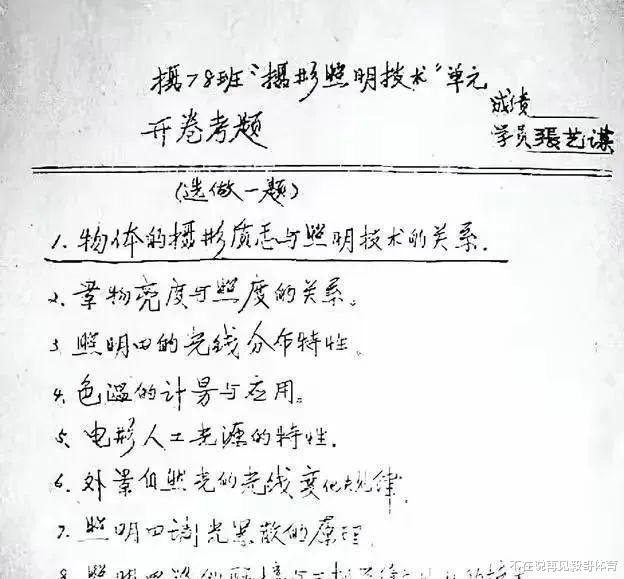 摄78班“摄影照明技术”单元
开卷考题
成绩
学员 張艺谋
(选做一题)
1. 物体的摄影质态与照明技术的关系.
2. 景物亮度与照度的关系。
3. 照明田的光线分布特性。
4. 色温的计昜与应用。
5. 电影人工光源的特性.
6. 外景自然光的光线变化规律
7. 照明田调光累散的原理
8. 照明
不在说再见毅哥体育